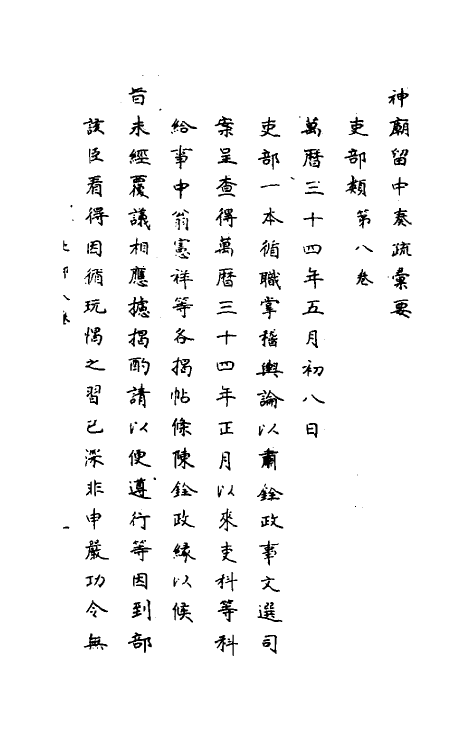 神廟留中奏疏彙要
吏部類第八卷
萬曆三十四年五月初八日
吏部一本循職掌稽輿論以肅銓政事文選司
案呈查得萬曆三十四年正月以來吏科等科
給事中翁憲祥等各揭帖條陳銓政緣以候
旨未經覆議相應據揭酌請以便遵行等因到部
該臣看得因循玩愒之習已深非申嚴功令無
吏部八卷
一